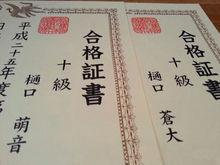 合格証書
十級
樋口 蒼大
合格証書
十級
樋口 萌音
平成二十五年度